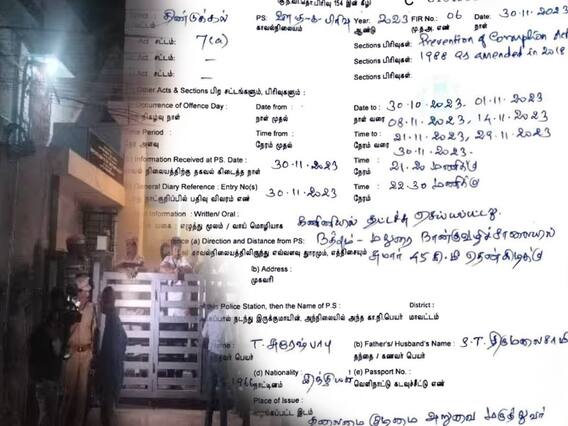 குற்றவியல் 154 இன் கீழ்
திண்டுக்கல் PS: ஊ.த.க. பிரிவு Year: 2023 FIR No: 06 Date: 30-11-2023
காவல்நிலையம் ஆண்டு மு.த.அ. எண் நாள்
Act 7(a) Sections பிரிவுகள்: Prevention of Corruption Act
சட்டம்: 1988 as amended in 2018
Act சட்டம்: — Sections பிரிவுகள்:
Act சட்டம்: — Sections பிரிவுகள்:
Other Acts & Sections பிற சட்டங்களும், பிரிவுகளும் :
Occurrence of Offence Day: Date from : Date to : 30-10-2023, 01-11-2023
நிகழ்வு நாள் நாள் முதல் நாள் வரை 08-11-2023, 14-11-2023
Time Period : Time from : Time to : 21-11-2023, 29-11-2023
அளவு நேரம் முதல் நேரம் வரை 30-11-2023.
Information Received at PS. Date : 30-11-2023 Time : 21-20 மணிக்கு
நிலையத்திற்கு தகவல் கிடைத்த நாள் நேரம்
General Diary Reference : Entry No(s) 30-11-2023 Time : 22-30 மணிக்கு
நாட்குறிப்பில் பதிவு விவரம் எண் நேரம்
Information : Written/ Oral : கணினியில் தட்டச்சு செய்யப்பட்டது
வகை : எழுத்து மூலம் / வாய் மொழியாக
(a) Direction and Distance from PS: மதுரை நான்குவழிச்சாலையில்
காவல்நிலையத்திலிருந்து எவ்வளவு தூரமும், எத்திசையும் சுமார் 45 கி.மீ தென்கிழக்கு
(b) Address :
முகவரி
this Police Station, then the Name of P.S : District :
அப்பால் நடந்து இருக்குமாயின், அந்நிலையில் அந்த கா.நி.பெயர் மாவட்டம்
T. சுரேஷ்பாபு (b) Father's/ Husband's Name : S.T. திருமலைசாமி
பெயர் தந்தை / கணவர் பெயர்
1966 (d) Nationality : இந்தியன் (e) Passport No. :
நாட்டினம் வெளிநாட்டு கடவுச்சீட்டு எண்
Place of Issue :
வழங்கப்பட்ட இடம்
தலைமை குடிமை அறுவை மருத்துவர்